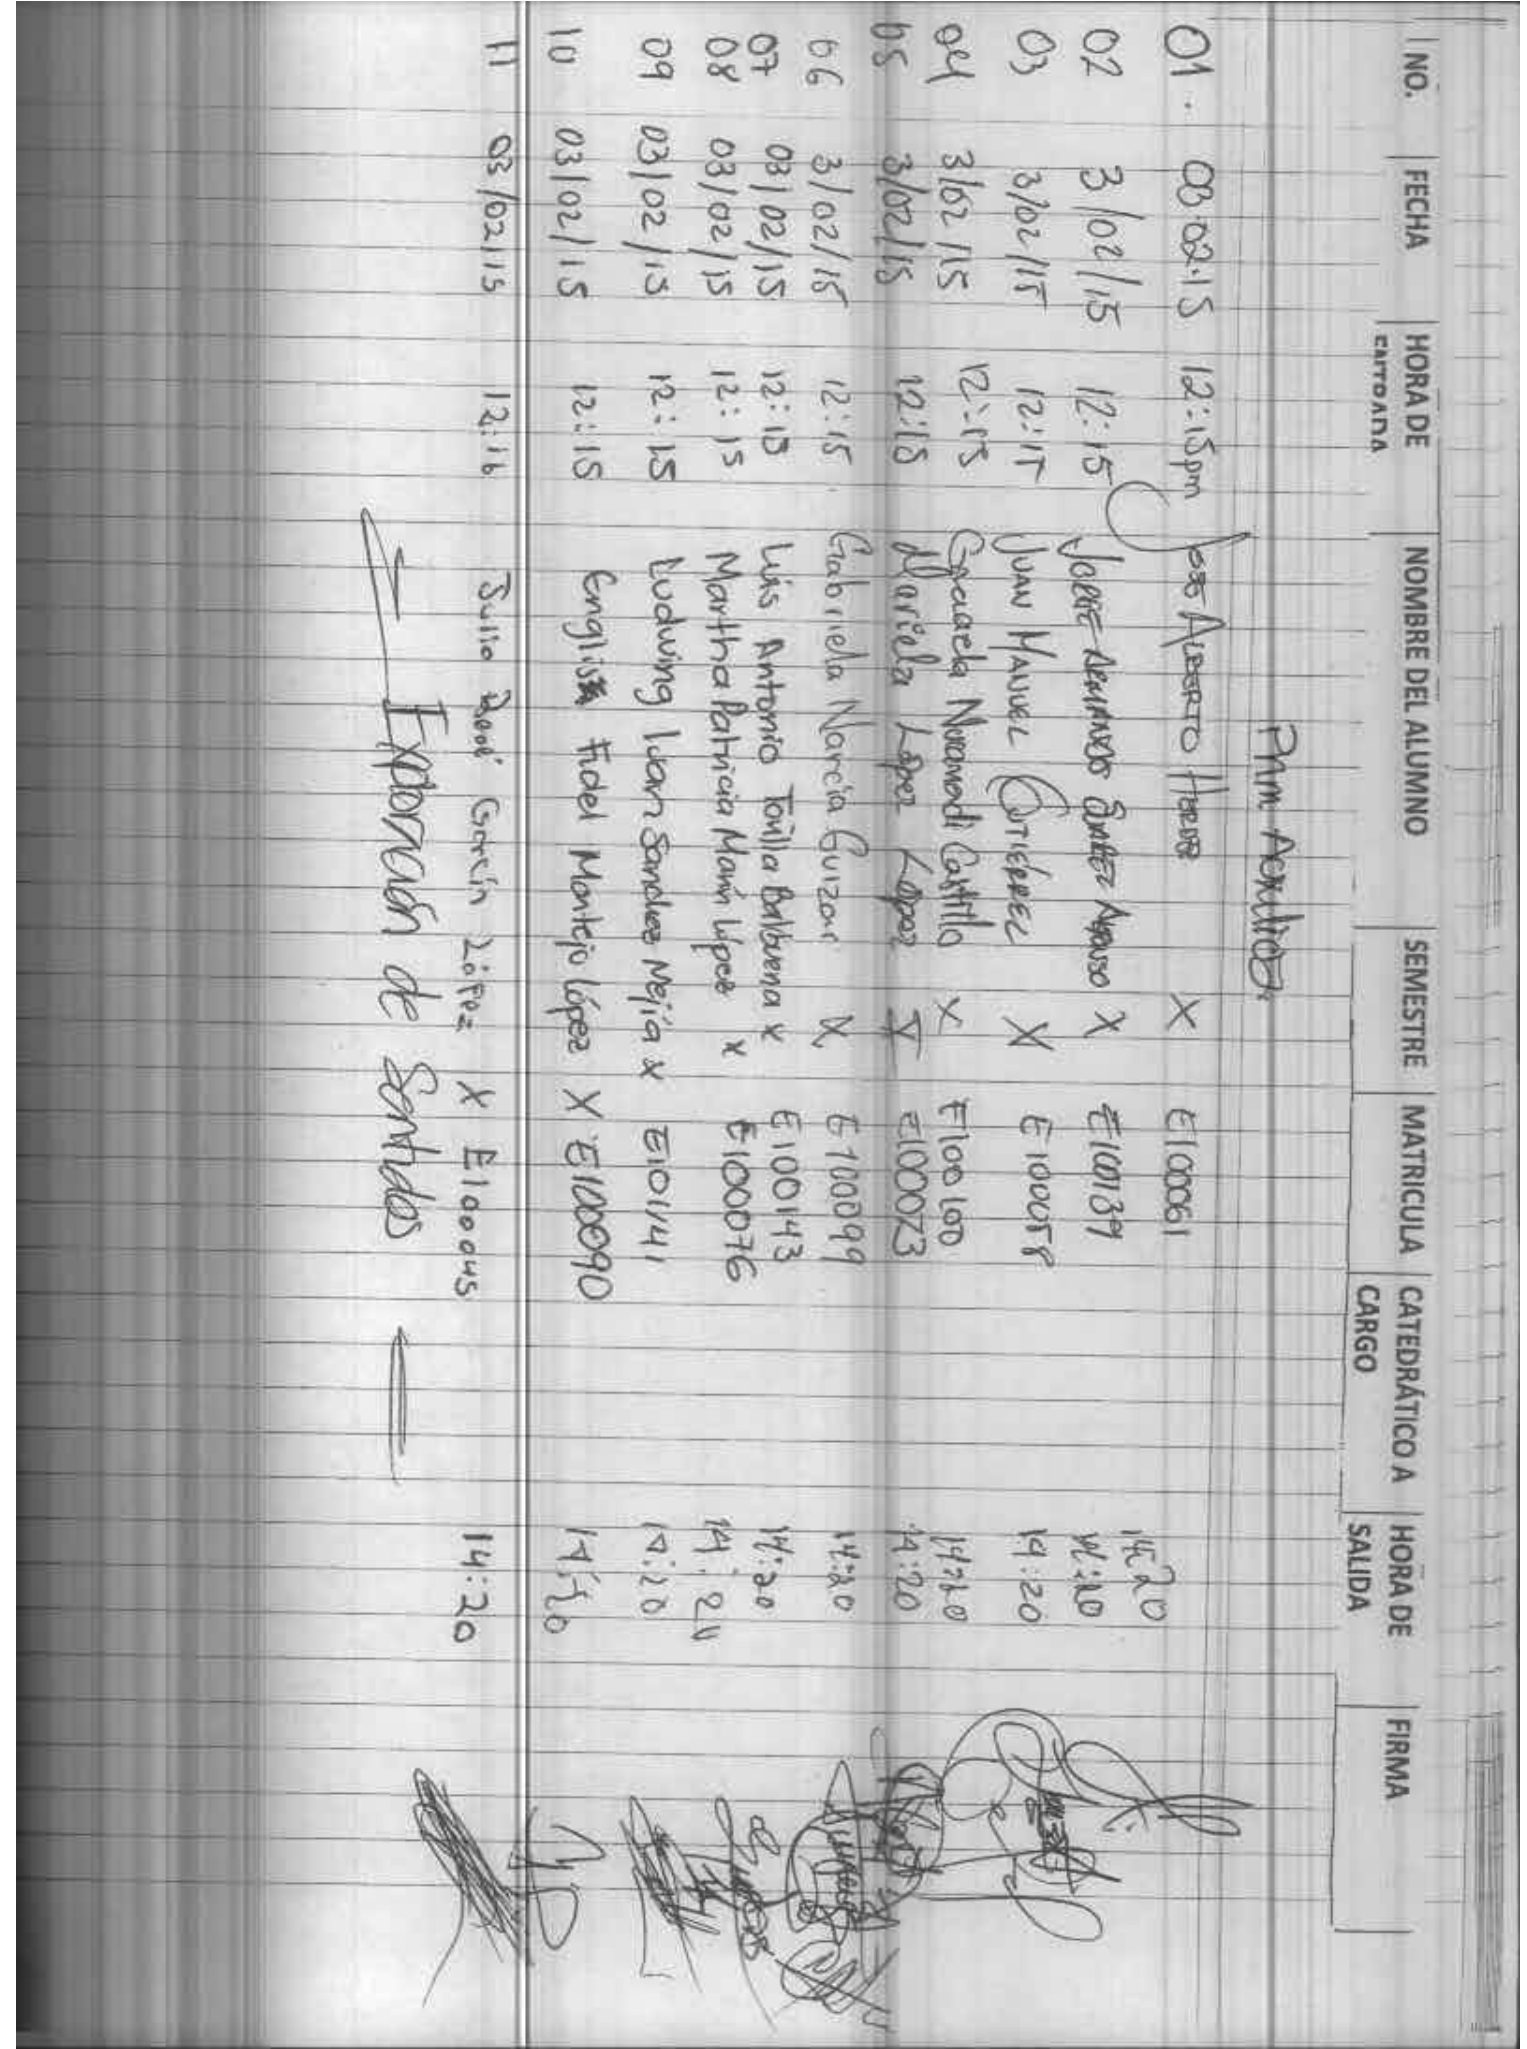 NO. FECHA HORA DE ENTRADA NOMBRE DEL ALUMNO SEMESTRE MATRICULA CATEDRÁTICO A CARGO HORA DE SALIDA FIRMA
01. 03.02.15 12:15pm José ALBERTO X E100061 14:20
02 3/02/15 12:15 JORGE ARMANDO X E100139 14:20
03 3/02/15 12:15 JUAN MANUEL GUTIÉRREZ X E100058 14:20
04 3/02/15 12:15 Graciela Castillo X E100100 14:20
05 3/02/15 12:15 Mariela López López X E100073 14:20
06 3/02/15 12:15 Gabriela Narcía Guizar X E100099 14:20
07 03/02/15 12:15 Luis Antonio Balbuena X E100143 14:20
08 03/02/15 12:15 Martha Patricia Marín López X E100076 14:20
09 03/02/15 12:15 Ludwing Ivan Sanchez Mejía X E101141 14:20
10 03/02/15 12:15 Fidel Montejo López X E100090 14:20
11 03/02/15 12:16 Julio García López X E100045 14:20
Exploración de Sentidos